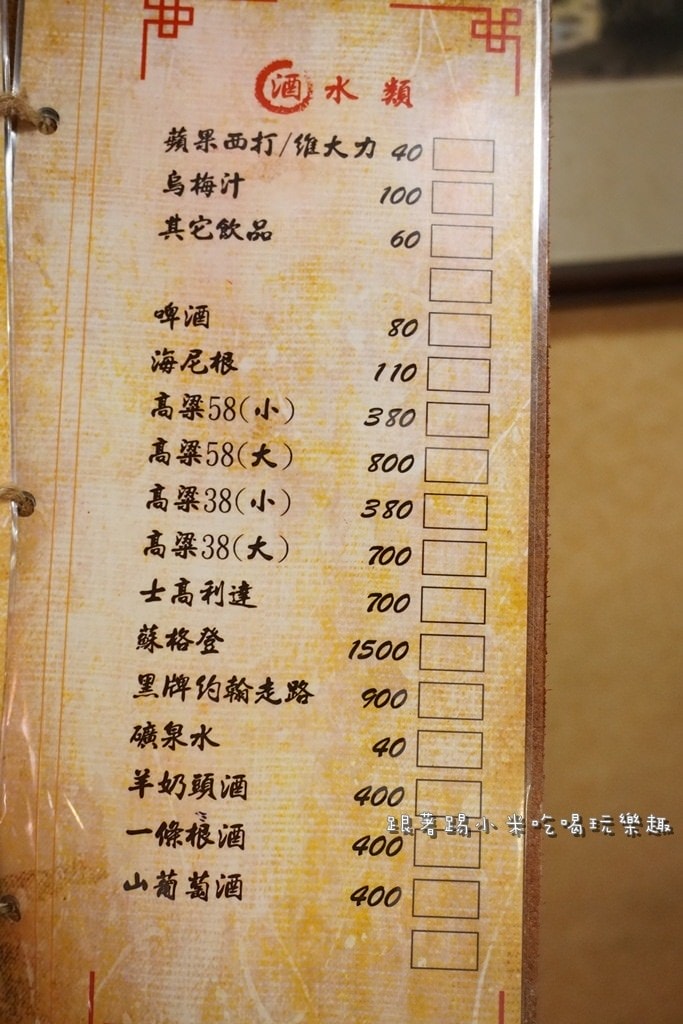 酒水類
蘋果西打/維大力 40
烏梅汁 100
其它飲品 60
啤酒 80
海尼根 110
高粱58(小) 380
高粱58(大) 800
高粱38(小) 380
高粱38(大) 700
士高利達 700
蘇格登 1500
黑牌約翰走路 900
礦泉水 40
羊奶頭酒 400
跟著踢小米吃喝玩樂趣
一條根酒 400
山葡萄酒 400